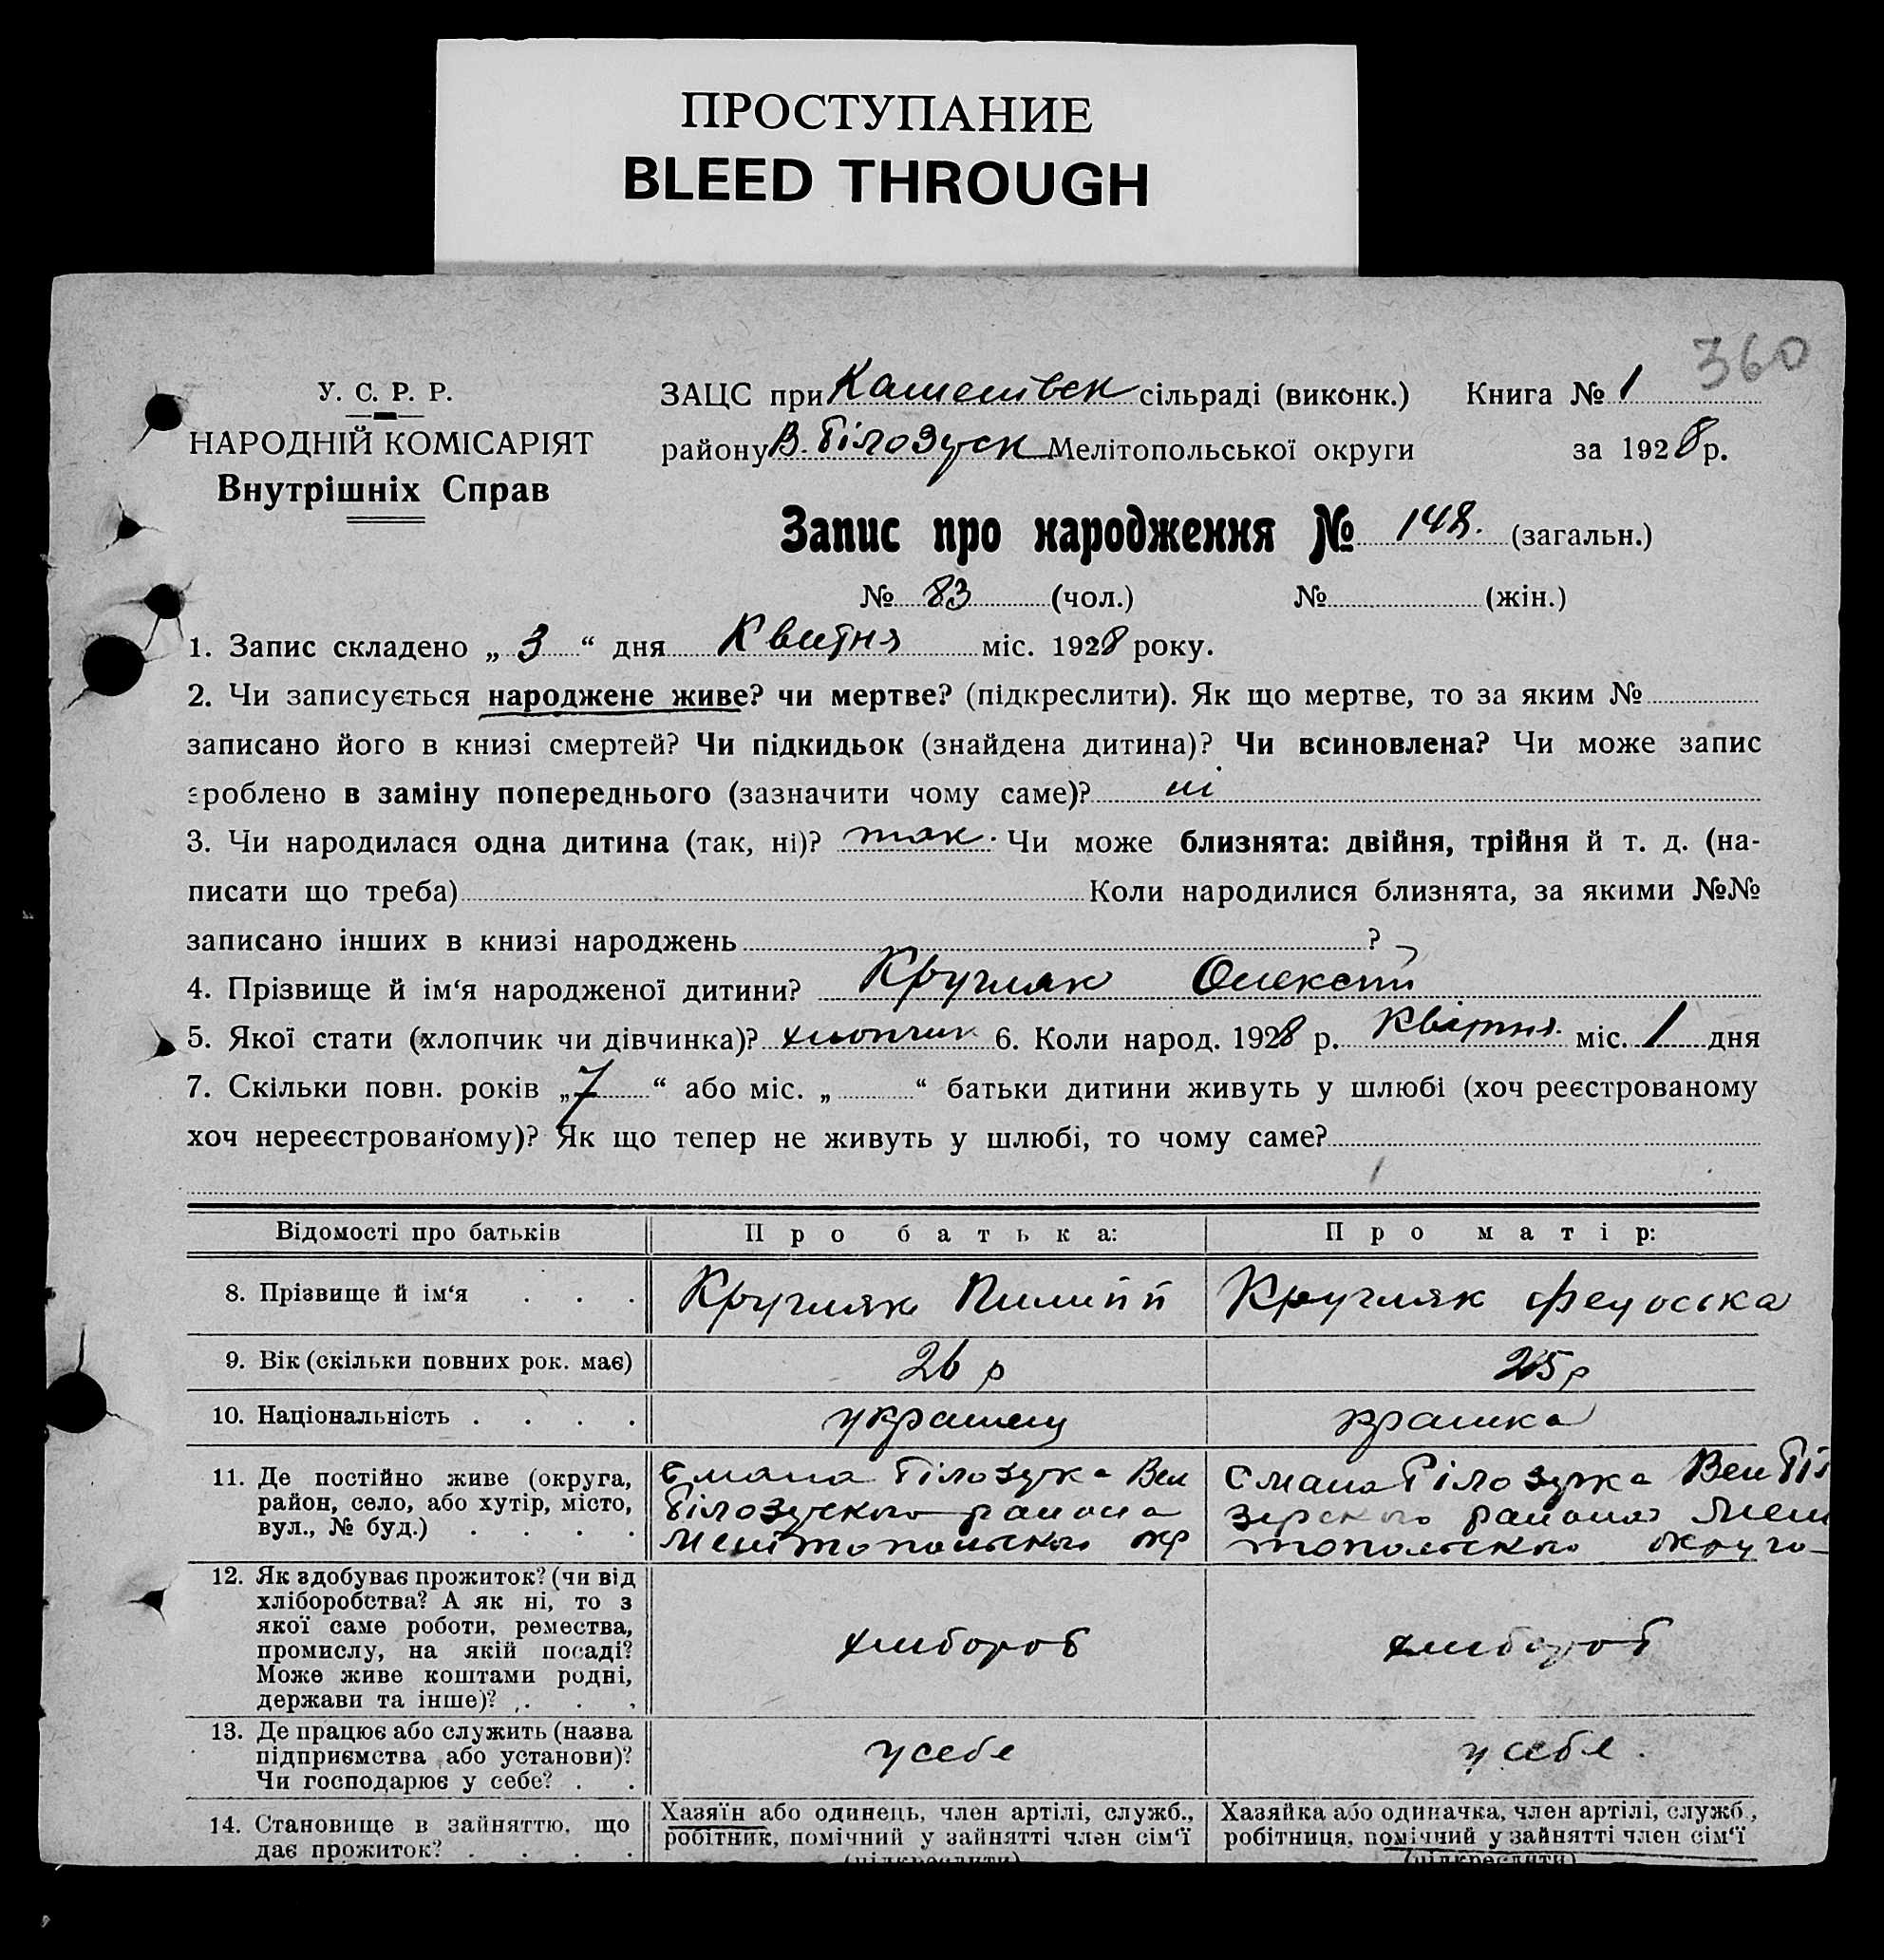 ПРОСТУПАНИЕ
BLEED THROUGH
360
У. С. Р. Р.
НАРОДНІЙ КОМІСАРІЯТ
Внутрішніх Справ
ЗАЦС при сільраді (виконк.) Книга № 1
району В. Білозурск Мелітопольської округи за 1928 р.
Запис про народження № 148. (загальн.)
№ 83 (чол.) № (жін.)
1. Запис складено „ 3 “ дня Квітня міс. 1928 року.
2. Чи записується народжене живе? чи мертве? (підкреслити). Як що мертве, то за яким №
записано його в книзі смертей? Чи підкидьок (знайдена дитина)? Чи всиновлена? Чи може запис
зроблено в заміну попереднього (зазначити чому саме)? ні
3. Чи народилася одна дитина (так, ні)? так. Чи може близнята: двійня, трійня й т. д. (на-
писати що треба) Коли народилися близнята, за якими №№
записано інших в книзі народжень ?
4. Прізвище й ім‘я народженої дитини? Кругляк Олексій
5. Якої стати (хлопчик чи дівчинка)? хлопчик 6. Коли народ. 1928 р. Квітня міс. 1 дня
7. Скільки повн. років „ 7 “ або міс. „ “ батьки дитини живуть у шлюбі (хоч реєстрованому
хоч нереєстрованому)? Як що тепер не живуть у шлюбі, то чому саме?
Відомості про батьків Про батька: Про матір:
8. Прізвище й ім‘я . . . Кругляк Пилипп Кругляк Федоська
9. Вік (скільки повних рок. має) 26 р 25 р
10. Національність . . . . українец
11. Де постійно живе (округа,
район, село, або хутір, місто,
вул., № буд.) . . . .
Мала Білозурка Вел
Білозурского района
Мелітопольского окр
Мала Білозурка Вел Біл
зурского района Мелі
топольского округа
12. Як здобуває прожиток? (чи від
хліборобства? А як ні, то з
якої саме роботи, ремества,
промислу, на якій посаді?
Може живе коштами родні,
держави та інше)? . . .
хлибороб хлибороб
13. Де працює або служить (назва
підприємства або установи)?
Чи господарює у себе? . .
у себе у себе.
14. Становище в зайняттю, що
дає прожиток? . . . .
Хазяїн або одинець, член артілі, служб.,
робітник, помічний у зайнятті член сім‘ї
(підкреслити)
Хазяйка або одиначка, член артілі, служб.,
робітниця, помічний у зайнятті член сім‘ї
(підкреслити)